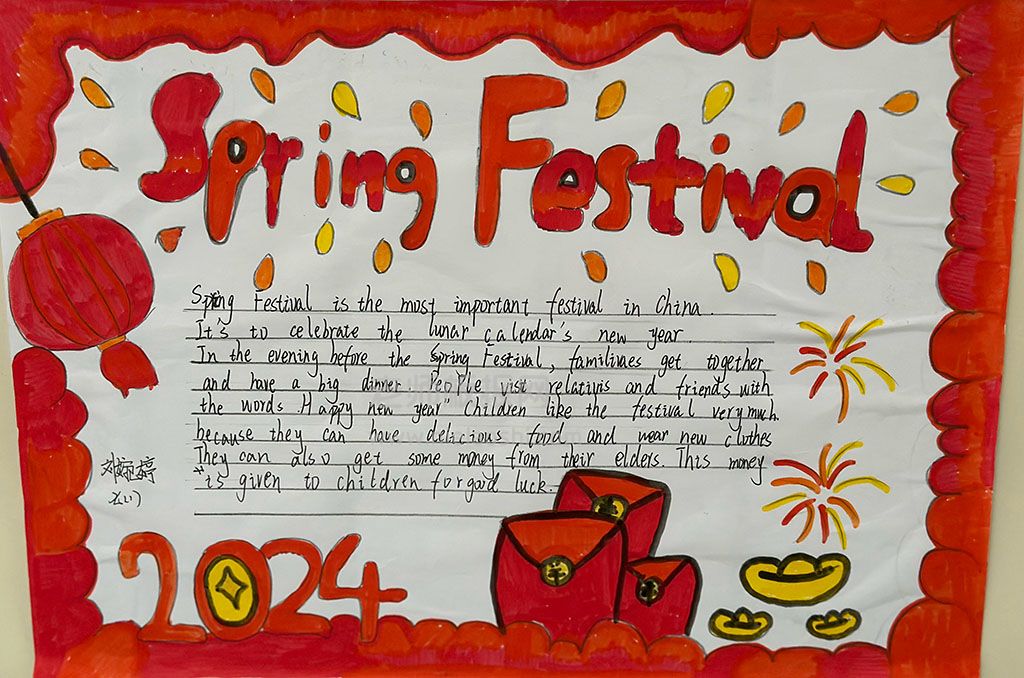 Spring Festival
Spring Festival is the most important festival in China.
It's to celebrate the lunar calendar's new year.
In the evening before the Spring Festival, familiaes get together
and have a big dinner. People visit relativis and friends with
the words "Happy new year" Children like the festival very much.
because they can have delicious food and wear new clothes
They can also get some money from their elders. This money
is given to children for good luck.
2024